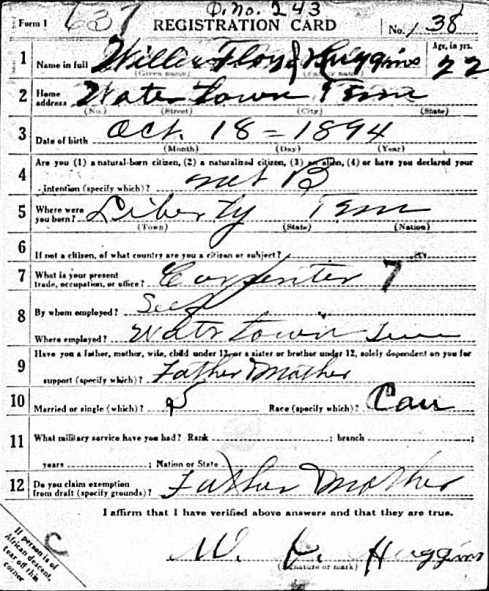 Form 1 637 D. No. 243
REGISTRATION CARD No. 138
1 Name in full Willie Floyd Huggins Age, in yrs. 22
(Given name) (Family name)
2 Home address Watertown Tenn
(No.) (Street) (City) (State)
3 Date of birth Oct. 18 = 1894
(Month) (Day) (Year)
4 Are you (1) a natural-born citizen, (2) a naturalized citizen, (3) an alien, (4) or have you declared your
intention (specify which)? nat B
5 Where were you born? Liberty Tenn
(Town) (State) (Nation)
6 If not a citizen, of what country are you a citizen or subject?
7 What is your present trade, occupation, or office? Carpenter 7
8 By whom employed? Self
Where employed? Watertown Tenn
9 Have you a father, mother, wife, child under 12, or a sister or brother under 12, solely dependent on you for
support (specify which)? Father Mother
10 Married or single (which)? S Race (specify which)? Cau
11 What military service have you had? Rank ; branch ;
years ; Nation or State
12 Do you claim exemption from draft (specify grounds)? Father Mother
I affirm that I have verified above answers and that they are true.
W. F. Huggins
(Signature or mark)
If person is of
African descent,
tear off this
corner
C